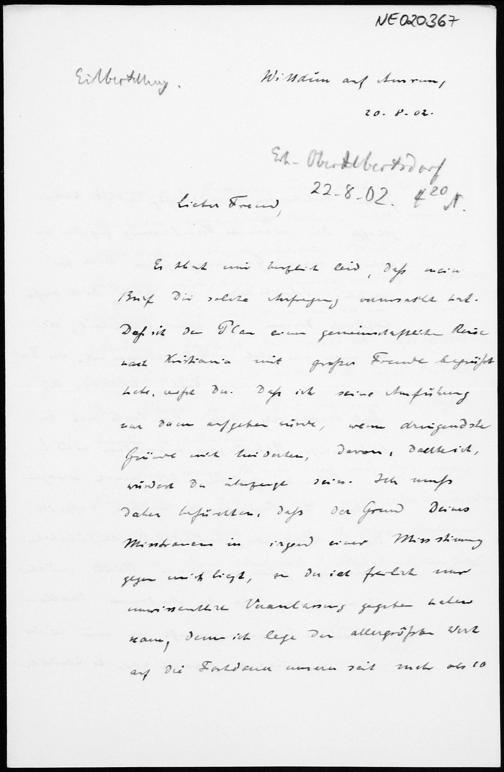 NE020367
Eilbestellung.
Wittdün auf Amrum,
20.8.02.
Erh. Oberalbertsdorf
22.8.02. 4 20 N.
Lieber Freund,
Es thut mir herzlich leid, daß mein
Brief Dir solche Aufregung verursacht hat.
Daß ich den Plan einer gemeinschaftlichen Reise
nach Kristiania mit großer Freude begrüßt
habe, weißt Du. Daß ich seine Ausführung
nur dann aufgeben würde, wenn dringendste
Gründe mich hinderten, davon, dachte ich,
würdest Du überzeugt sein. Ich muß
daher befürchten, daß der Grund Deines
Misstrauens in irgend einer Missstimmung
gegen mich liegt, zu der ich freilich nur
unwissentliche Veranlassung gegeben haben
kann, denn ich lege den allergrößten Wert
auf die Fortdauer unserer seit mehr als 10